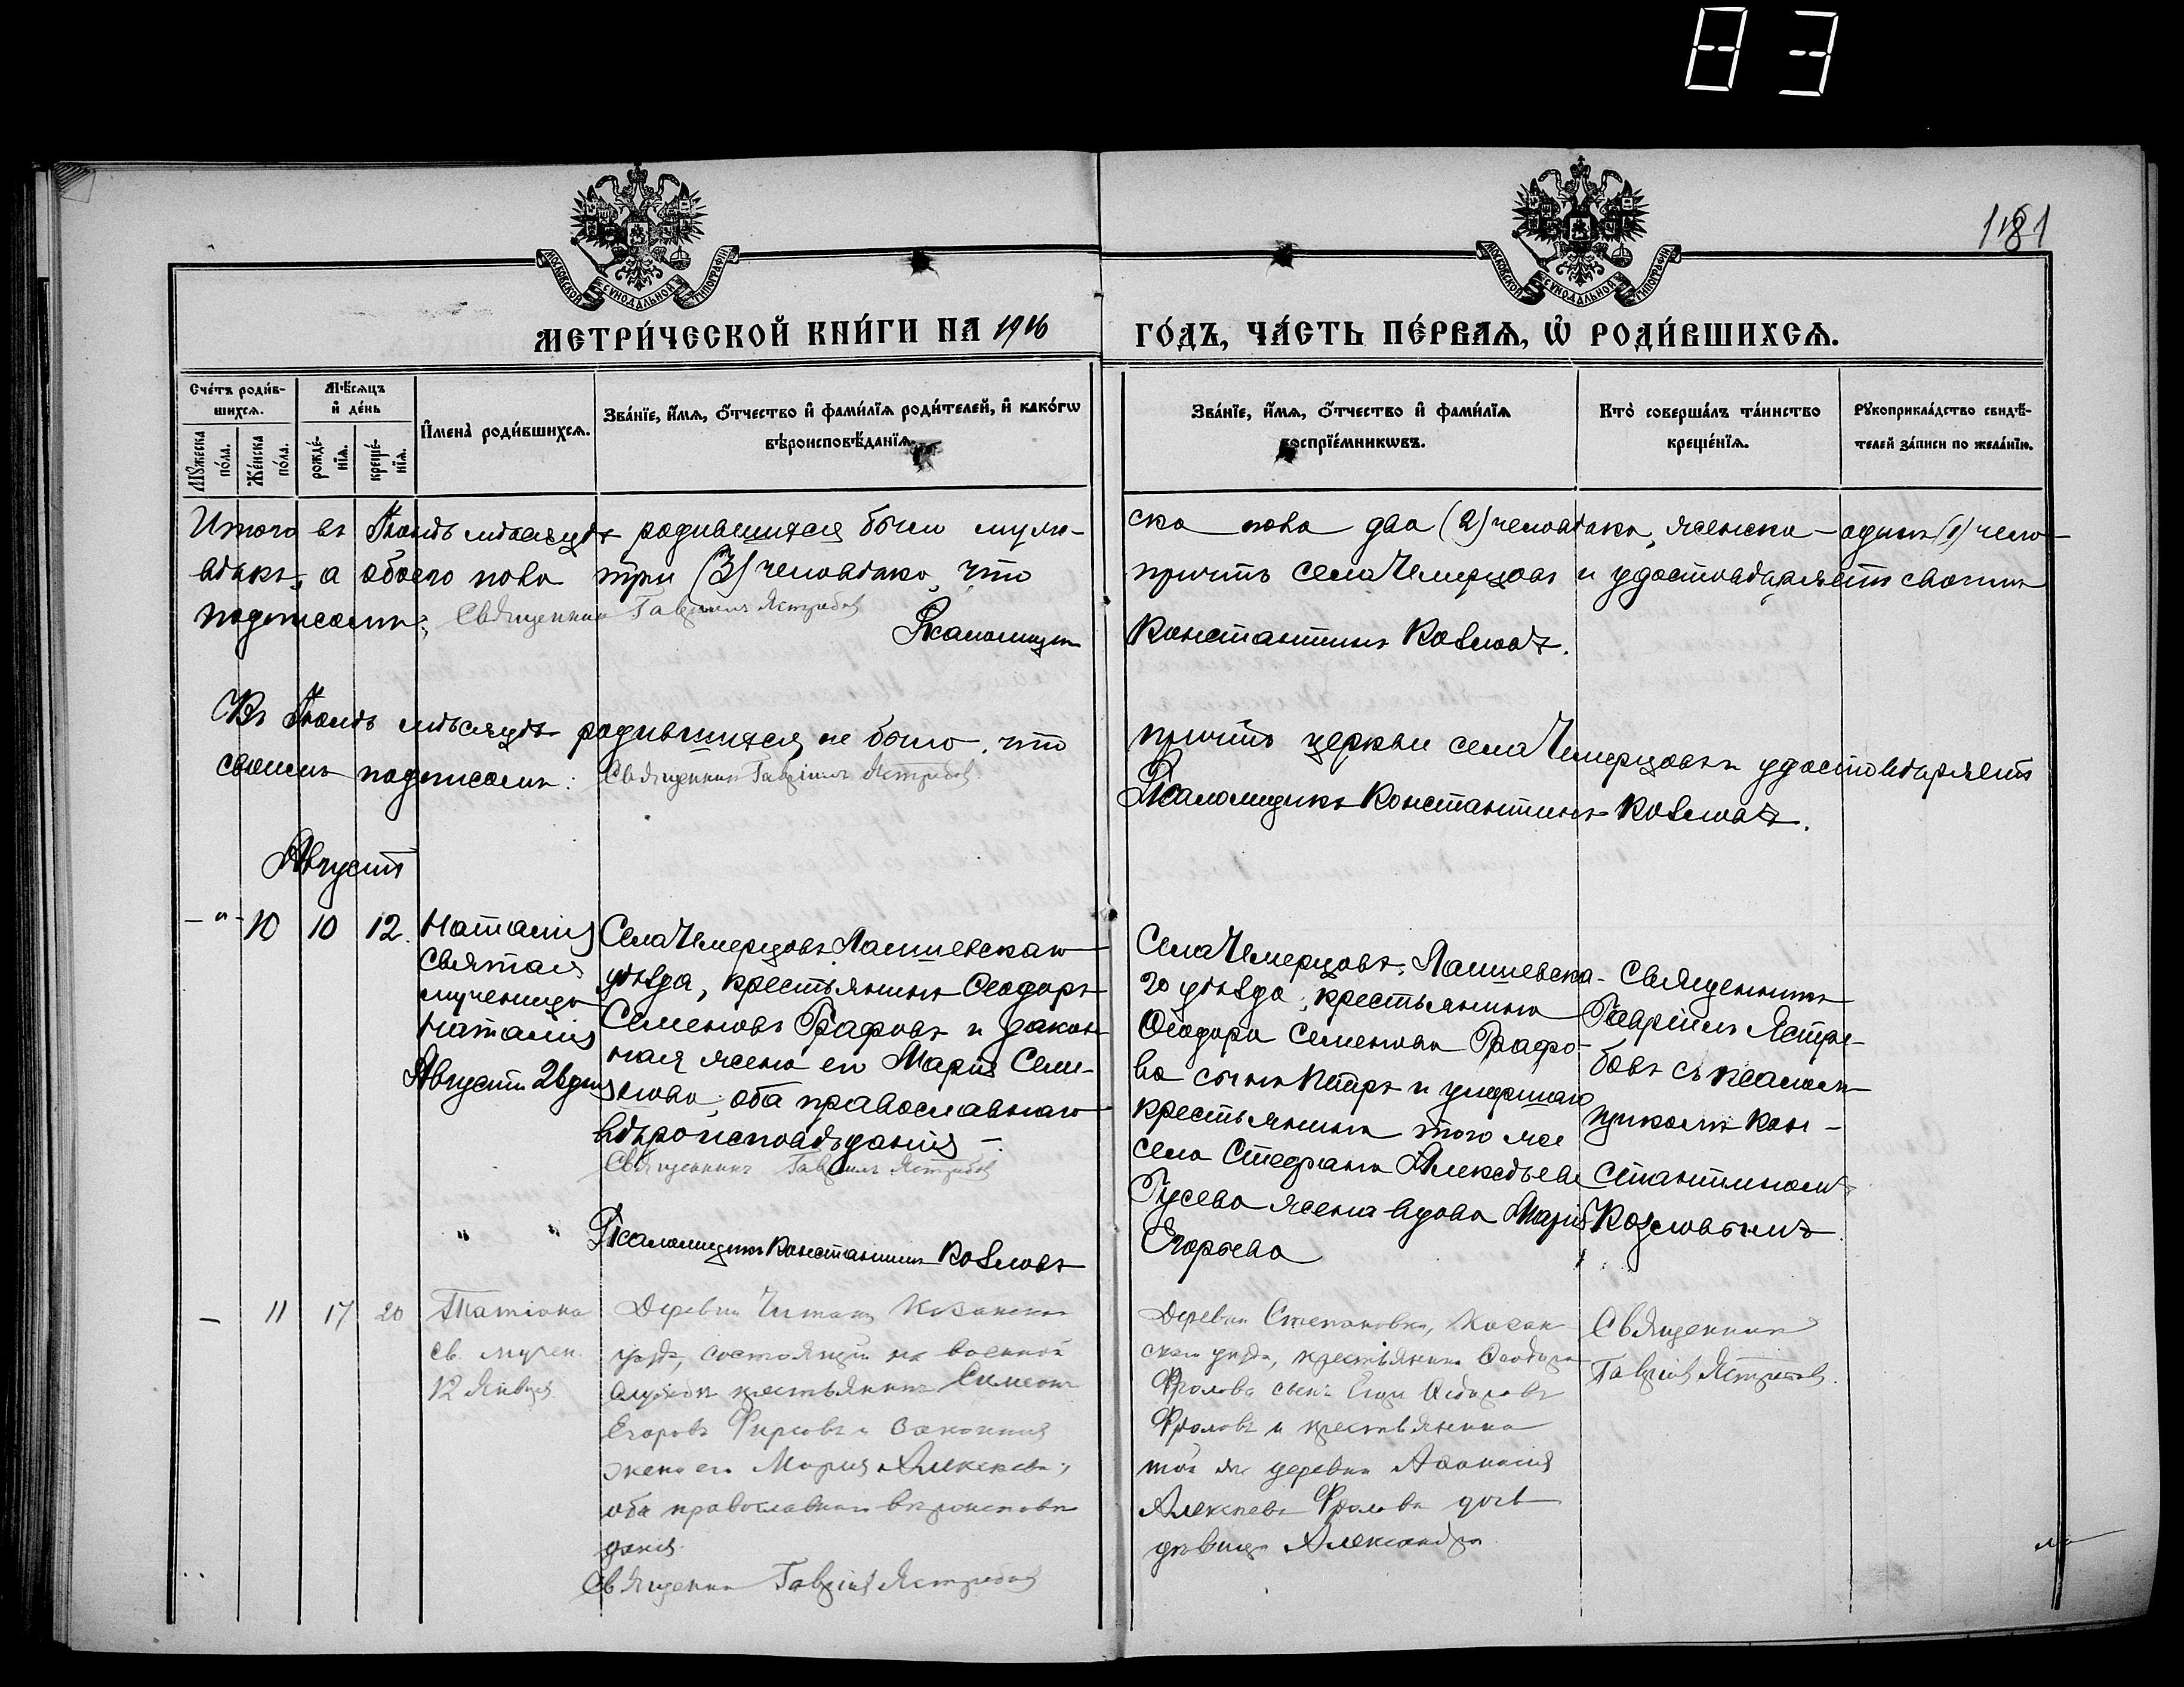 83
181
МОСКОВСКОЙ СѴНОДАЛЬНОЙ ТИПОГРАФІИ
МОСКОВСКОЙ СѴНОДАЛЬНОЙ ТИПОГРАФІИ
МЕТРИ́ЧЕСКОЙ КНИ́ГИ НА 1916 ГО́ДЪ, ЧА́СТЬ ПЕ́РВАѦ, Ѡ҆ РОДИ́ВШИХСѦ.
Сче́тъ роди́в-
шихсѧ.
Мꙋ́жеска
по́ла.
Же́нска
по́ла.
Мѣ́сѧцъ
и҆ де́нь
рожде́-
нїѧ.
креще́-
нїѧ.
И҆мена̀ роди́вшихсѧ.
Зва́нїе, и҆́мѧ, ѻ҆́тчество и҆ фами́лїѧ роди́телей, и҆ како́гѡ
вѣроисповѣ́данїѧ.
Зва́нїе, и҆́мѧ, ѻ҆́тчество и҆ фами́лїѧ
воспрїе́мникѡвъ.
Кто̀ соверша́лъ та́инство
креще́нїѧ.
Рꙋкоприкла́дство свидѣ́-
телей за́писи по жела́нїю.
Итого въ Іюнѣ мѣсяцѣ родившихся было муже-
ска пола два (2) человѣка, женска - одинъ (1) чело-
вѣкъ, а обоего пола три (3) человѣка, что
причтъ села Чемерцовъ и удостовѣряетъ своимъ
подписомъ: Священникъ Гавріилъ Ястребовъ
Псаломщикъ Константинъ Козловъ.
Въ Іюлѣ мѣсяцѣ родившихся не было, что
причтъ церкви села Чемерцовъ и удостовѣряетъ
своимъ подписомъ: Священникъ Гавріилъ Ястребовъ.
Псаломщикъ Константинъ Козловъ.
Августъ
- " - 10 10 12.
Наталія
Святая
мученица
Наталія
Августа 26 дня
Села Чемерцовъ Лаишевскаго
уѣзда, крестьянинъ Ѳеодоръ
Семеновъ Графовъ и закон-
ная жена его Марія Семе-
нова; оба православнаго
вѣроисповѣданія -
Священникъ Гавріилъ Ястребовъ
" " Псаломщикъ Константинъ Козловъ
Села Чемерцовъ, Лаишевска-
го уѣзда, крестьянина
Ѳеодора Семенова Графо-
ва сынъ Петръ и умершаго
крестьянина того же
села Стефана Алексѣева
Гусева жена вдова Марія
Егорьева
Священникъ
Гавріилъ Ястре-
бовъ съ псалом-
щикомъ Кон-
стантиномъ
Козловымъ
- 11 17 20
Татіана
св. мучен.
12 Января
Деревни Читы Казанскаго
уѣзда, состоящій на военной
службѣ крестьянинъ Симеонъ
Егоровъ Фирсовъ и законная
жена его Марія Алексѣева;
оба православнаго вѣроисповѣ
данія.
Священникъ Гавріилъ Ястребовъ
Деревни Степановки, Казан
скаго уѣзда, крестьянина Ѳеодора
Фролова сынъ Егоръ Ѳедоровъ
Фроловъ и крестьянина
той же деревни Аѳанасія
Алексѣева Фролова дочь
дѣвица Александра
Священникъ
Гавріилъ Ястребовъ.